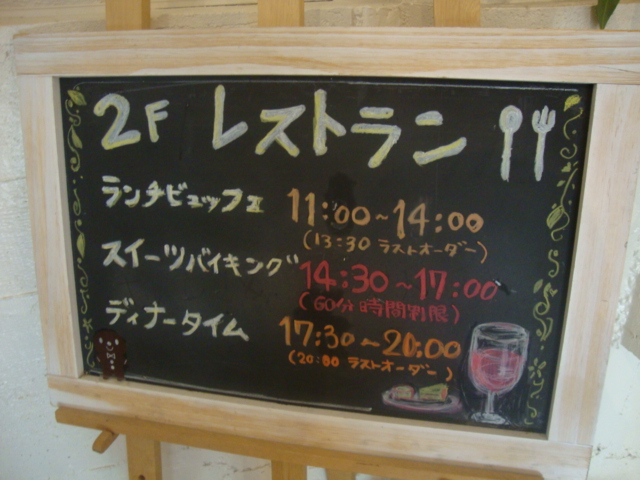 2F レストラン
ランチビュッフェ 11:00~14:00
(13:30 ラストオーダー)
スイーツバイキング 14:30~17:00
(60分時間制限)
ディナータイム 17:30~20:00
(20:00 ラストオーダー)